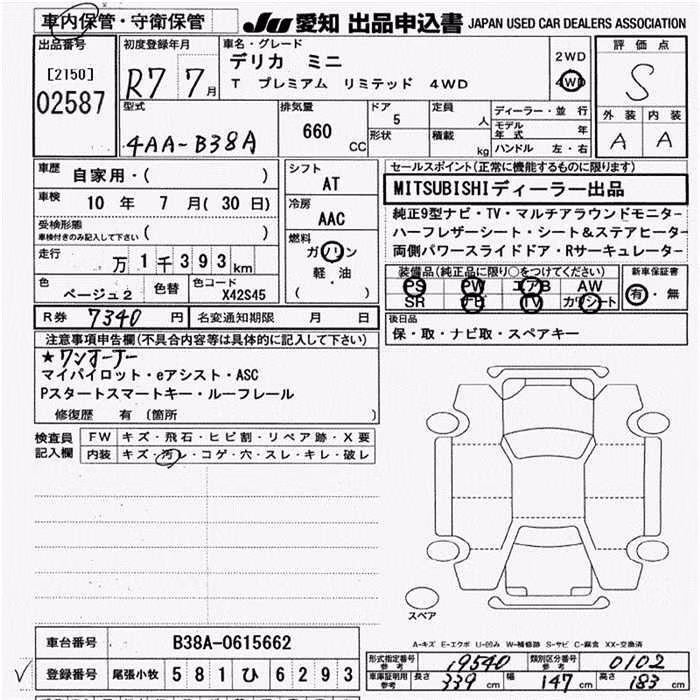 車内保管・守衛保管 JU 愛知 出品申込書 JAPAN USED CAR DEALERS ASSOCIATION
出品番号 初度登録年月 車名・グレード 評価点
[2150] デリカ ミニ 2WD
02587 R7 7月 T プレミアム リミテッド 4WD 4WD S
型式 排気量 ドア 定員 ディーラー・並行 外装 内装
4AA-B38A 660 CC 5 人 モデル年式 年 A A
形状 積載 kg ハンドル 左・右
車歴 自家用・( ) シフト AT セールスポイント(正常に機能するものに限ります)
車検 10年 7月(30日) 冷房 AAC MITSUBISHIディーラー出品
受検形態 ( ) 純正9型ナビ・TV・マルチアラウンドモニター
車検付きのみ記入して下さい 燃料 ハーフレザーシート・シート&ステアヒーター
走行 万1千393km ガソリン 両側パワースライドドア・Rサーキュレーター
軽・油 装備品(純正品に限り○をつけてください) 新車保証書
色 ベージュ2 色替 色コード X42S45 ( ) PS PW エアB AW 有・無
SR ナビ TV カワシート
R券 7340円 名変通知期限 月 日 後日品
注意事項申告欄(不具合内容等は具体的に記入して下さい) 保・取・ナビ取・スペアキー
★ワンオーナー
マイパイロット・eアシスト・ASC
Pスタートスマートキー・ルーフレール
修復歴 有 (箇所 )
検査員 FW キズ・飛石・ヒビ割・リペア跡・X要
記入欄 内装 キズ・汚レ・コゲ・穴・スレ・キレ・破レ
スペア
車台番号 B38A-0615662 A-キズ E-エクボ U-凹み W-補修跡 S-サビ C-腐食 XX-交換済
登録番号 尾張小牧 581 ひ 6293 形式指定番号 参考 19540 類別区分番号 参考 0102
車庫証明用 参考 長さ 339cm 幅 147cm 高さ 183cm